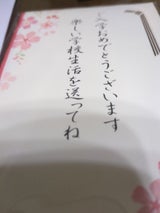 入学おめでとうございます
楽しい学校生活を送ってね